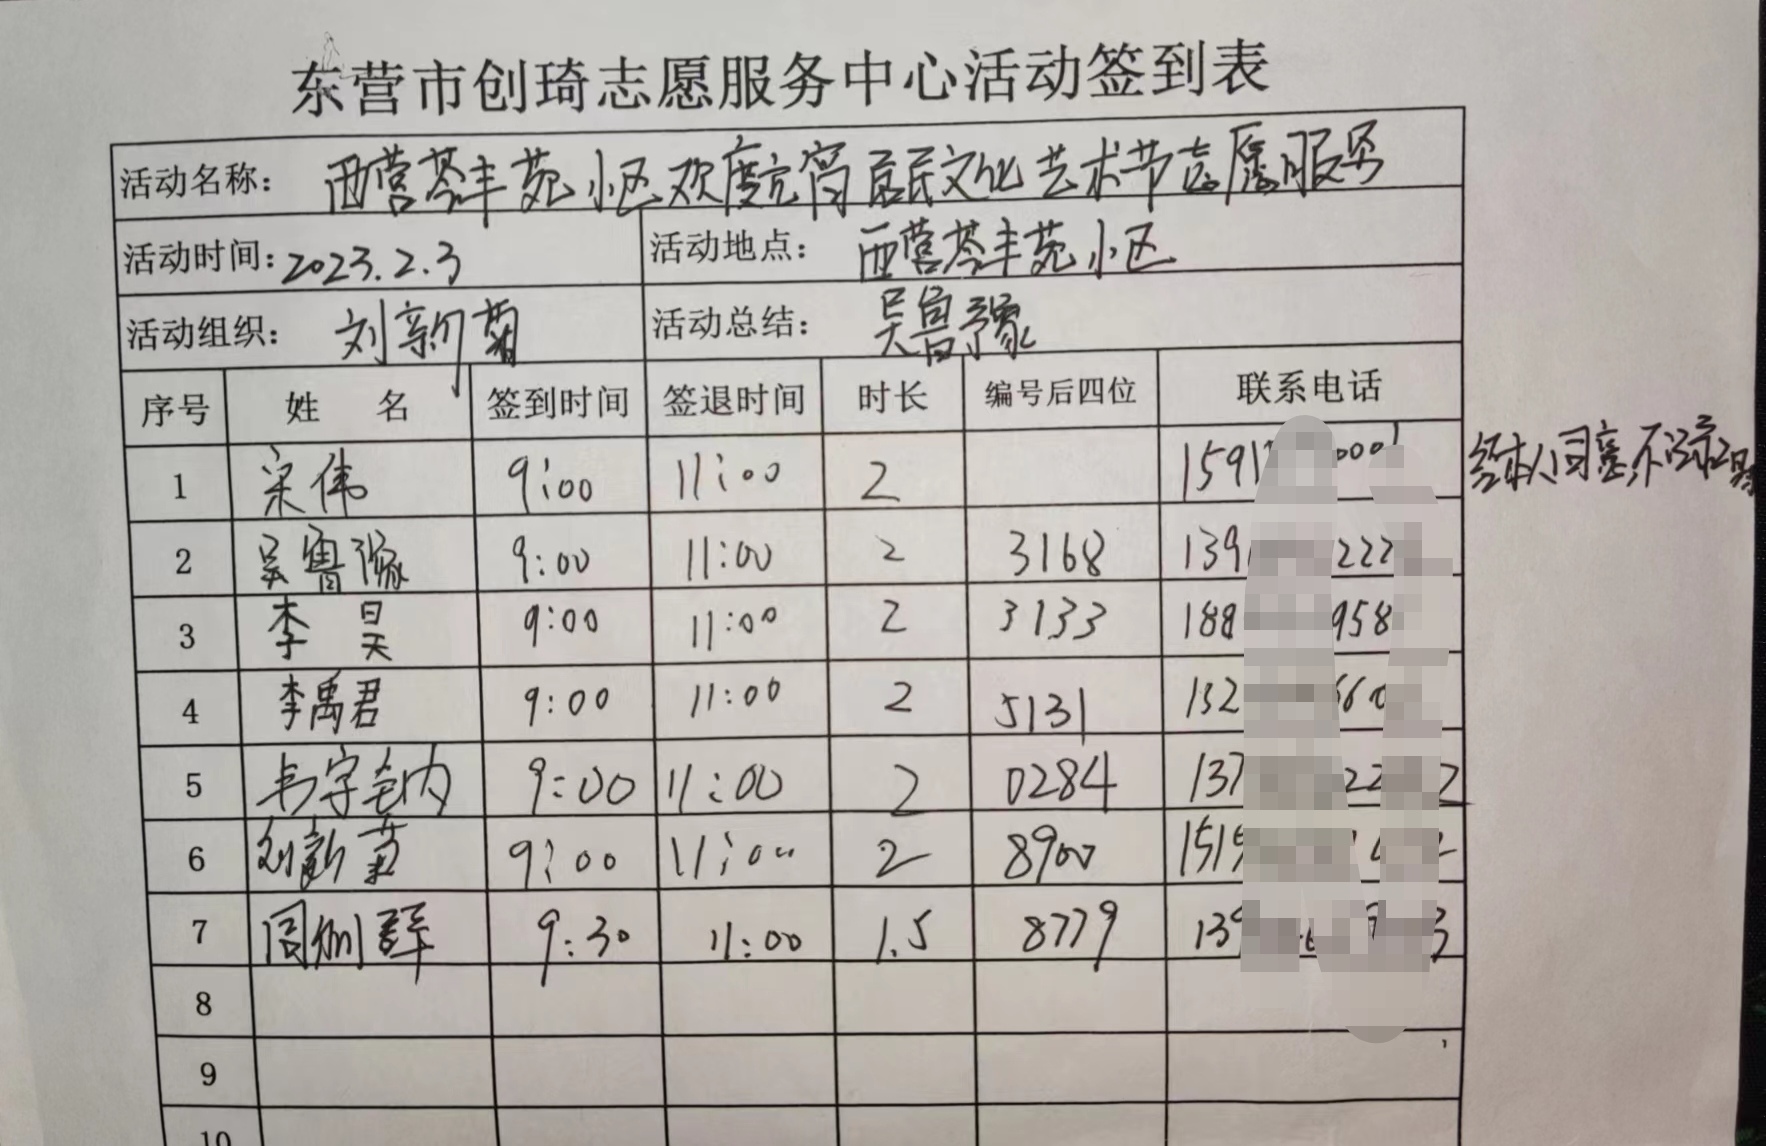 东营市创琦志愿服务中心活动签到表
活动名称： 西营荟丰苑小区欢度元宵居民文化艺术节志愿服务
活动时间：2023.2.3 活动地点： 西营荟丰苑小区
活动组织： 刘新菊 活动总结： 吴鲁豫
序号 姓 名 签到时间 签退时间 时长 编号后四位 联系电话
1 宋伟 9:00 11:00 2 1591 0001 经本人同意,不记录工时
2 吴鲁豫 9:00 11:00 2 3168 139 222
3 李昊 9:00 11:00 2 3133 188 958
4 李禹君 9:00 11:00 2 5131 132 660
5 9:00 11:00 2 0284 137 22 2
6 刘新菊 9:00 11:00 2 8900 1515
7 9:30 11:00 1.5 8779 139 3
8
9
10